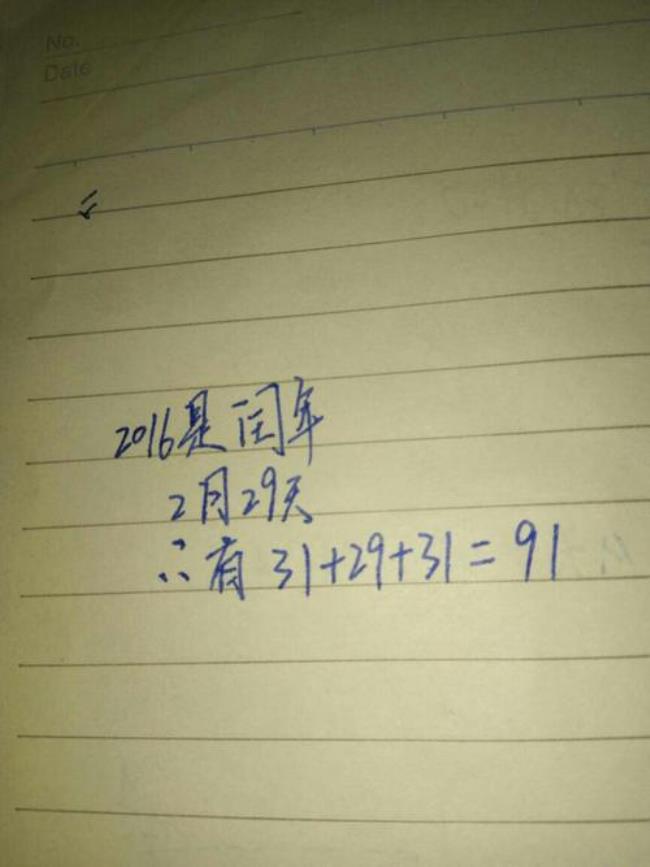 No.
Date
2016是闰年
2月29天
∴有 31+29+31=91